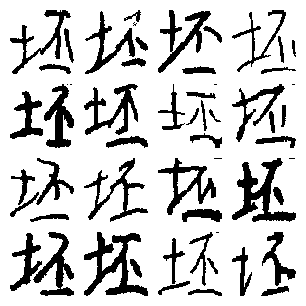 坯坯坯坯
坯坯坯坯
坯坯坯坯
坯坯坯坯